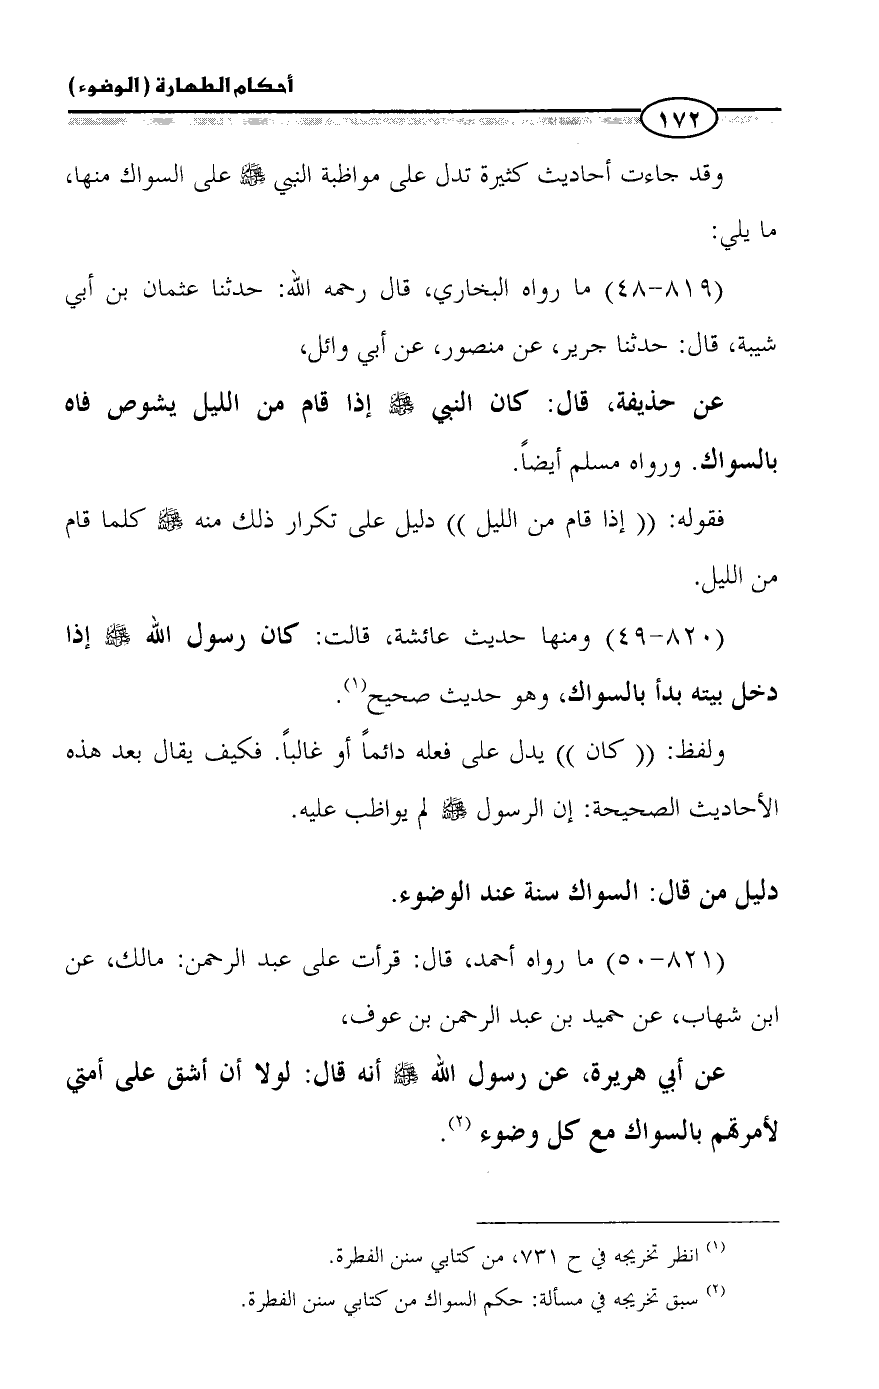 أحكام الطهارة (الوضوء)
١٧٢
وقد جاءت أحاديث كثيرة تدل على مواظبة النبي ﷺ على السواك منها،
ما يلي:
(٨١٩-٤٨) ما رواه البخاري، قال رحمه الله: حدثنا عثمان بن أبي
شيبة، قال: حدثنا جرير، عن منصور، عن أبي وائل،
عن حذيفة، قال: كان النبي ﷺ إذا قام من الليل يشوص فاه
بالسواك. ورواه مسلم أيضاً.
فقوله: (( إذا قام من الليل )) دليل على تكرار ذلك منه ﷺ كلما قام
من الليل.
(٨٢٠-٤٩) ومنها حديث عائشة، قالت: كان رسول الله ﷺ إذا
دخل بيته بدأ بالسواك، وهو حديث صحيح(١).
ولفظ: (( كان )) يدل على فعله دائماً أو غالباً. فكيف يقال بعد هذه
الأحاديث الصحيحة: إن الرسول ﷺ لم يواظب عليه.
دليل من قال: السواك سنة عند الوضوء.
(٨٢١-٥٠) ما رواه أحمد، قال: قرأت على عبد الرحمن: مالك، عن
ابن شهاب، عن حميد بن عبد الرحمن بن عوف،
عن أبي هريرة، عن رسول الله ﷺ أنه قال: لولا أن أشق على أمتي
لأمرتهم بالسواك مع كل وضوء (٢).
(١) انظر تخريجه في ح ٧٣١، من كتابي سنن الفطرة.
(٢) سبق تخريجه في مسألة: حكم السواك من كتابي سنن الفطرة.